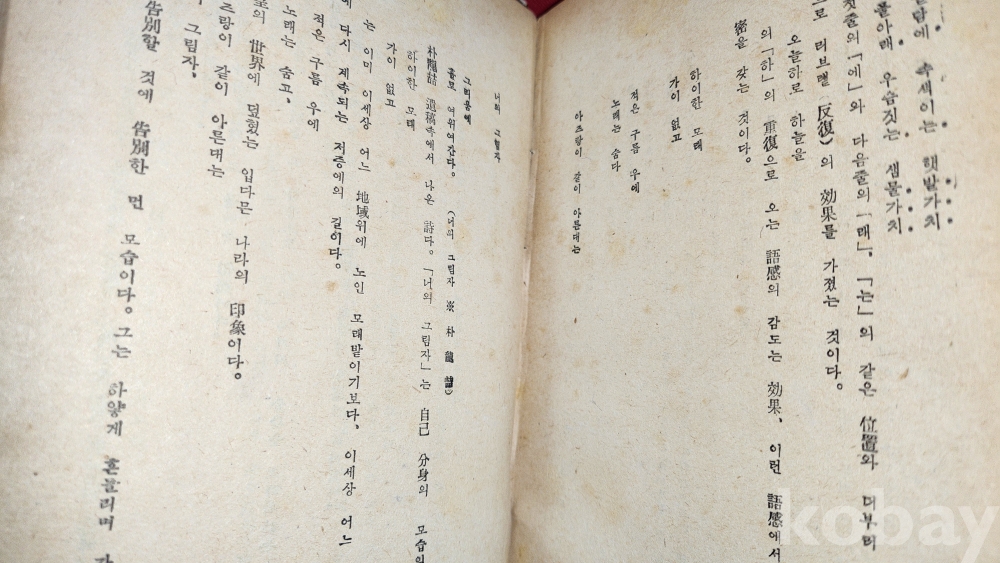 돌담에 속색이는 햇발가치
풀아래 우슴짓는 샘물가치
첫줄의 「에」와 다음줄의 「래」, 「는」의 같은 位置와 더부러
으로 러브랠 反復)의 効果를 가졌는 것이다.
오늘하로 하늘을
의 「하」의 重復으로 오는 語感의 감도는 効果, 이런 語感에서
密을 갖는 것이다.
하이한 모래
가이 없고
적은 구름 우에
노래는 숨다
아즈랑이 같이 아른대는
너의 그림자
그리움에
홀로 여위여간다. (너의 그림자 ※ 朴龍喆)
朴龍喆 遺稿속에서 나온 詩다. 「너의 그림자」는 自己 分身의 모습의
하이한 모래
가이 없고
는 이미 이세상 어느 地域위에 노인 모래밭이기보다, 이세상 어느
에 다시 계속되는 저증에의 길이다.
적은 구름 우에
노래는 숨고,
의 世界에 덮혔는 입다믄 나라의 印象이다.
즈랑이 같이 아른대는
그림자,
告別할 것에 告別한 먼 모습이다. 그는 하얗게 흔들리며
kobay